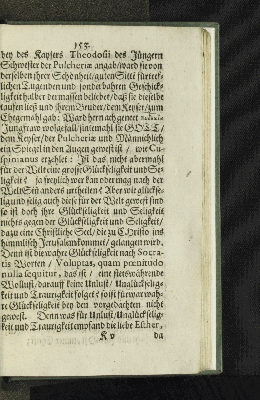 155.
bey des Kaysers Theodosii des Jüngern
Schwester der Pulcheriæ angab/ward sie von
derselben ihrer Schönheit/guten Sitti fürtref-
lichen Tugenden und sonderbahren Geschick-
ligkeit halber der massen beliebet/daß sie dieselbe
tauffen ließ und ihrem Bruder/dem Keyser/zum
Ehegemahl gab: Ward hernach genent
Jungfrau wolgefall/sintemahl sie GOTT/
dem Keyser/der Pulcheriæ und Männiglich
ein Spiegel in den Augen gewest ist/ wie Cu-
spinianus erzehlet: Ist das nicht abermahl
für der Welt eine grosse Glückseligkeit und Se-
ligkeit? ja freylich wer kan oder mag nach der
Welt Sin anders urtheilen? Aber wie glückse-
lig und selig auch diese für der Welt gewest sind
so ist doch ihre Glückseligkeit und Seligkeit
nichts gegen der Glückseligkeit und Seligkeit/
dazu eine Christliche Seel/die zu Christo ins
himmlisch Jerusalem kommet/gelangen wird.
Denn ist die wahre Glückseligkeit nach Socra-
tis Worten/ Voluptas, quam pœnitudo
nulla sequitur, das ist/ eine stetswährende
Wollust/darauff keine Unlust/Unglückselig-
keit und Traurigkeit folget/so ist fürwar wah-
re Glückseligkeit bey den vorgedachten nicht
gewest. Denn was für Unlust/Unglückselig-
keit und Traurigkeit empfand die liebe Esther,
K v da